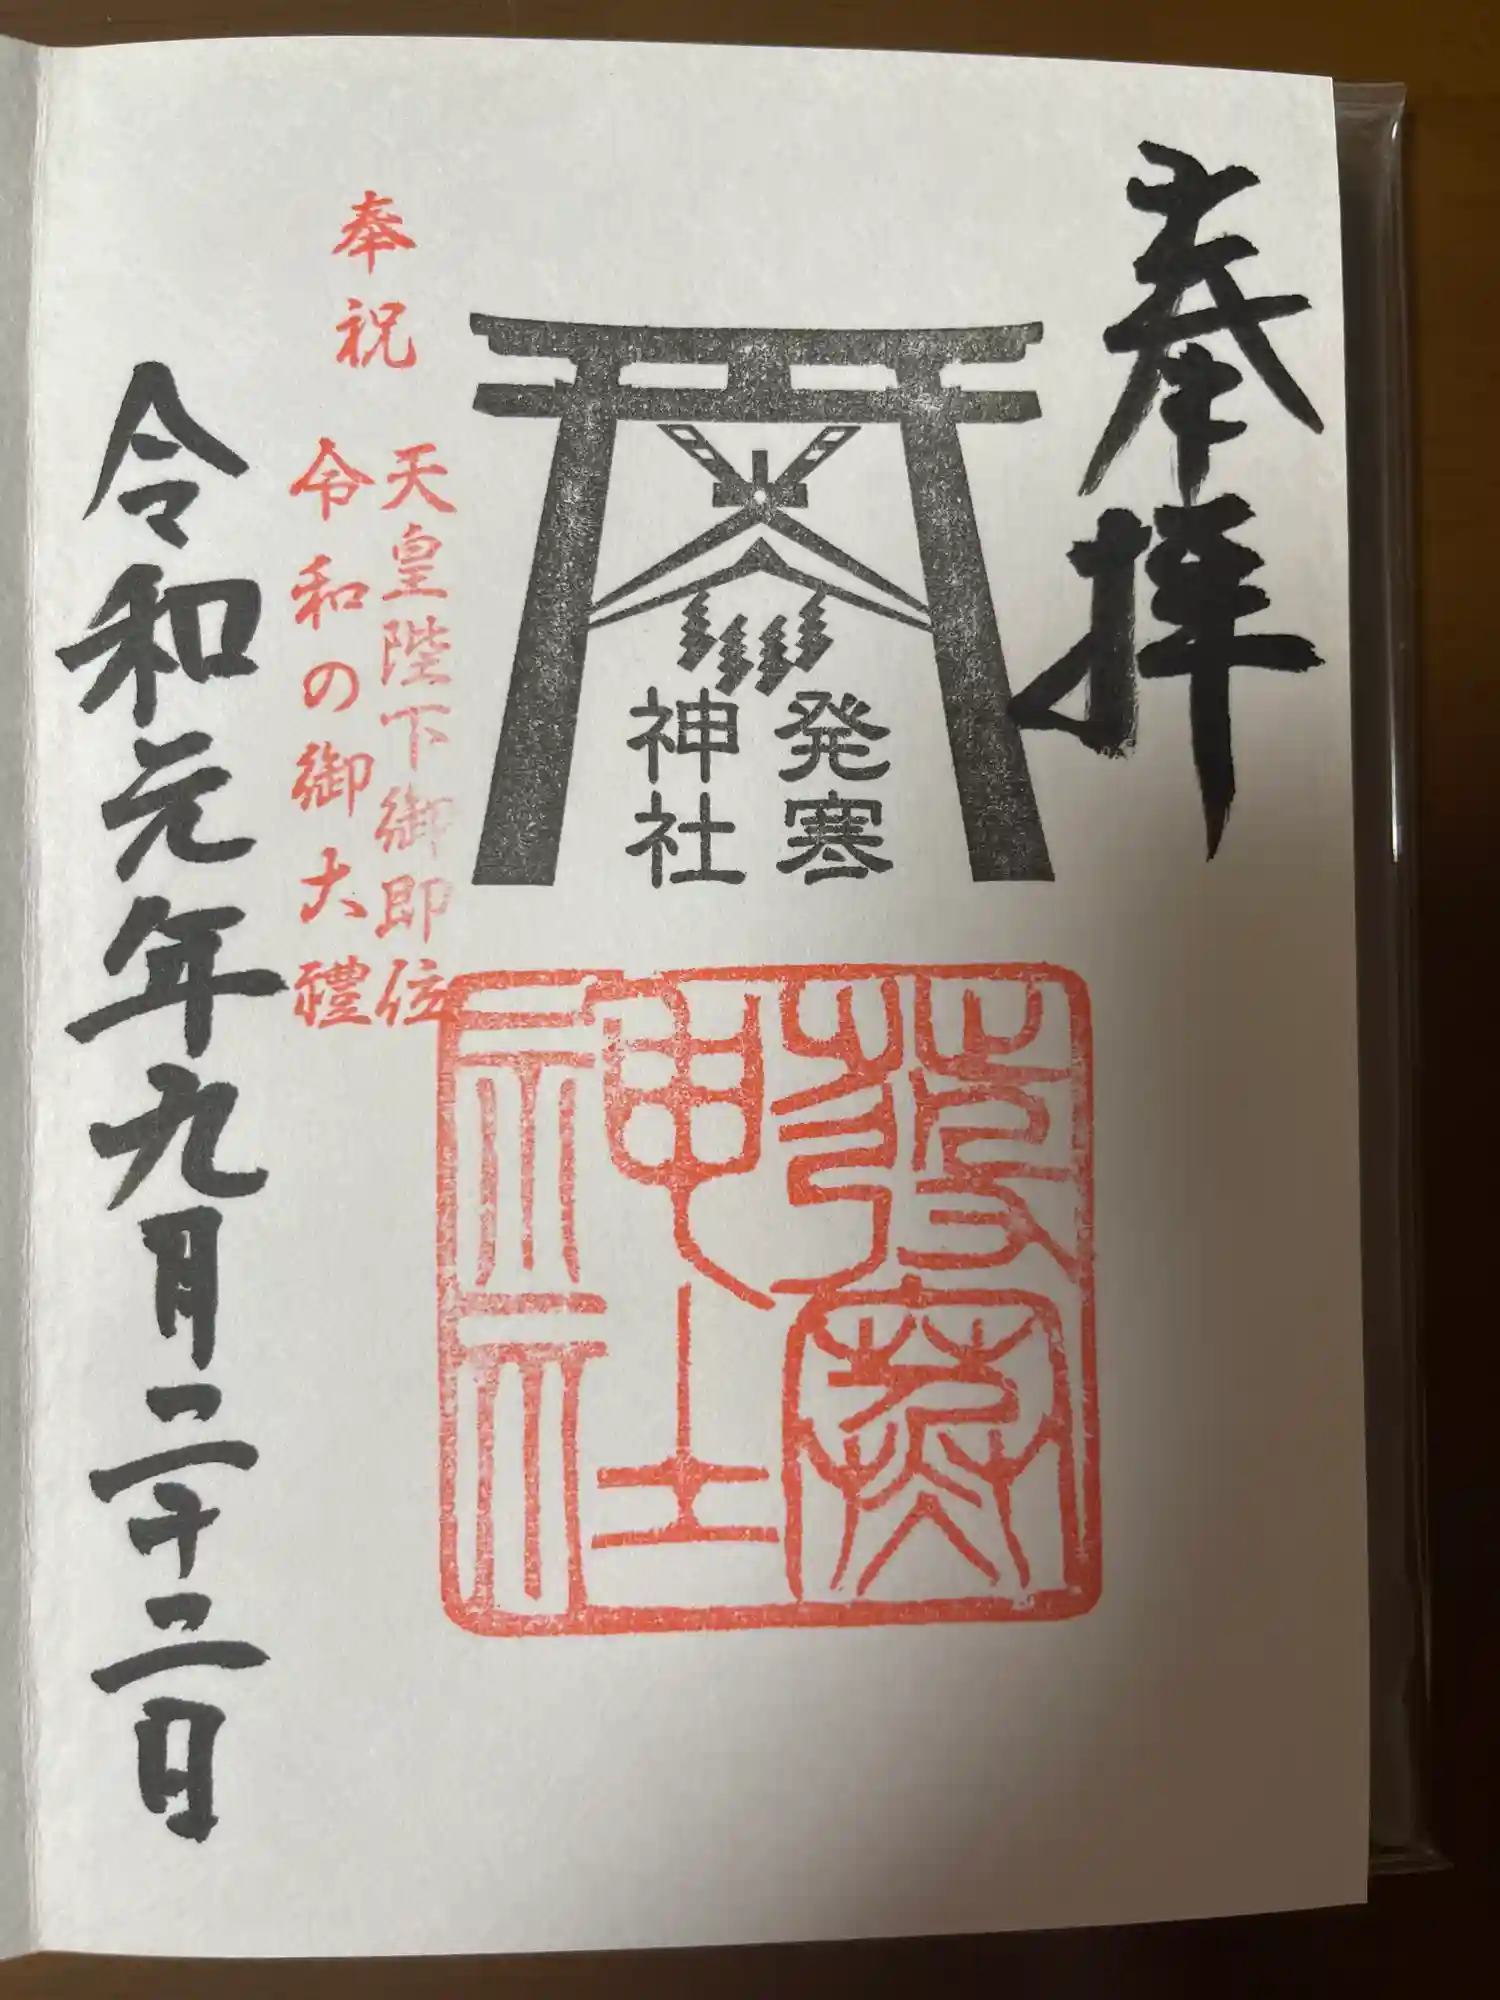 奉拝
発寒
神社
發寒
神社
奉祝
天皇陛下御即位
令和の御大禮
令和元年九月二十二日